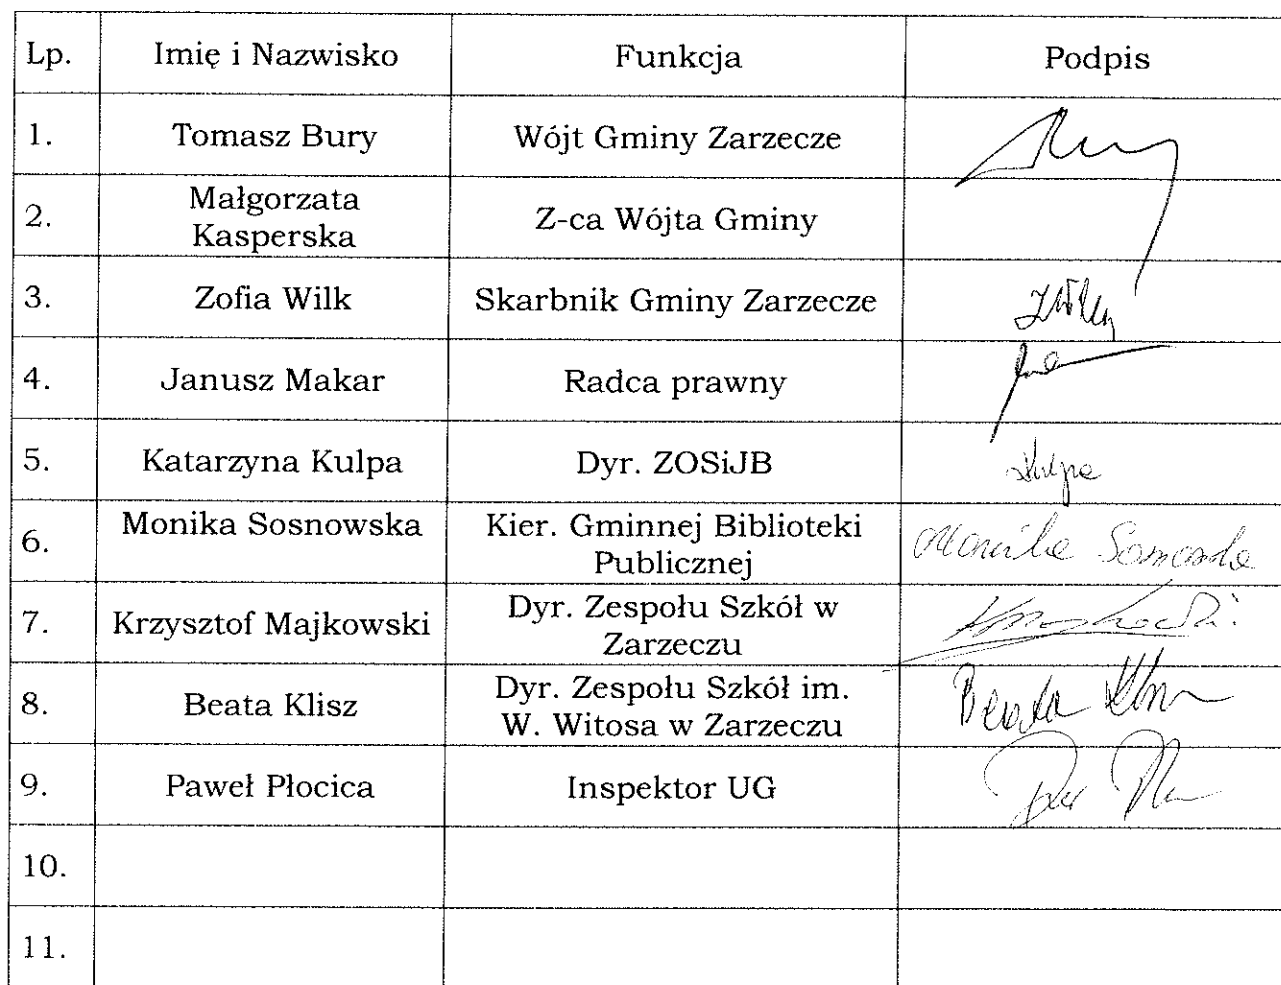 Lp. Imię i Nazwisko Funkcja Podpis
1. Tomasz Bury Wójt Gminy Zarzecze
2. Małgorzata Kasperska Z-ca Wójta Gminy
3. Zofia Wilk Skarbnik Gminy Zarzecze
4. Janusz Makar Radca prawny
5. Katarzyna Kulpa Dyr. ZOSiJB Kulpa
6. Monika Sosnowska Kier. Gminnej Biblioteki Publicznej Monika Sosnowska
7. Krzysztof Majkowski Dyr. Zespołu Szkół w Zarzeczu
8. Beata Klisz Dyr. Zespołu Szkół im. W. Witosa w Zarzeczu Beata
9. Paweł Płocica Inspektor UG
10.
11.